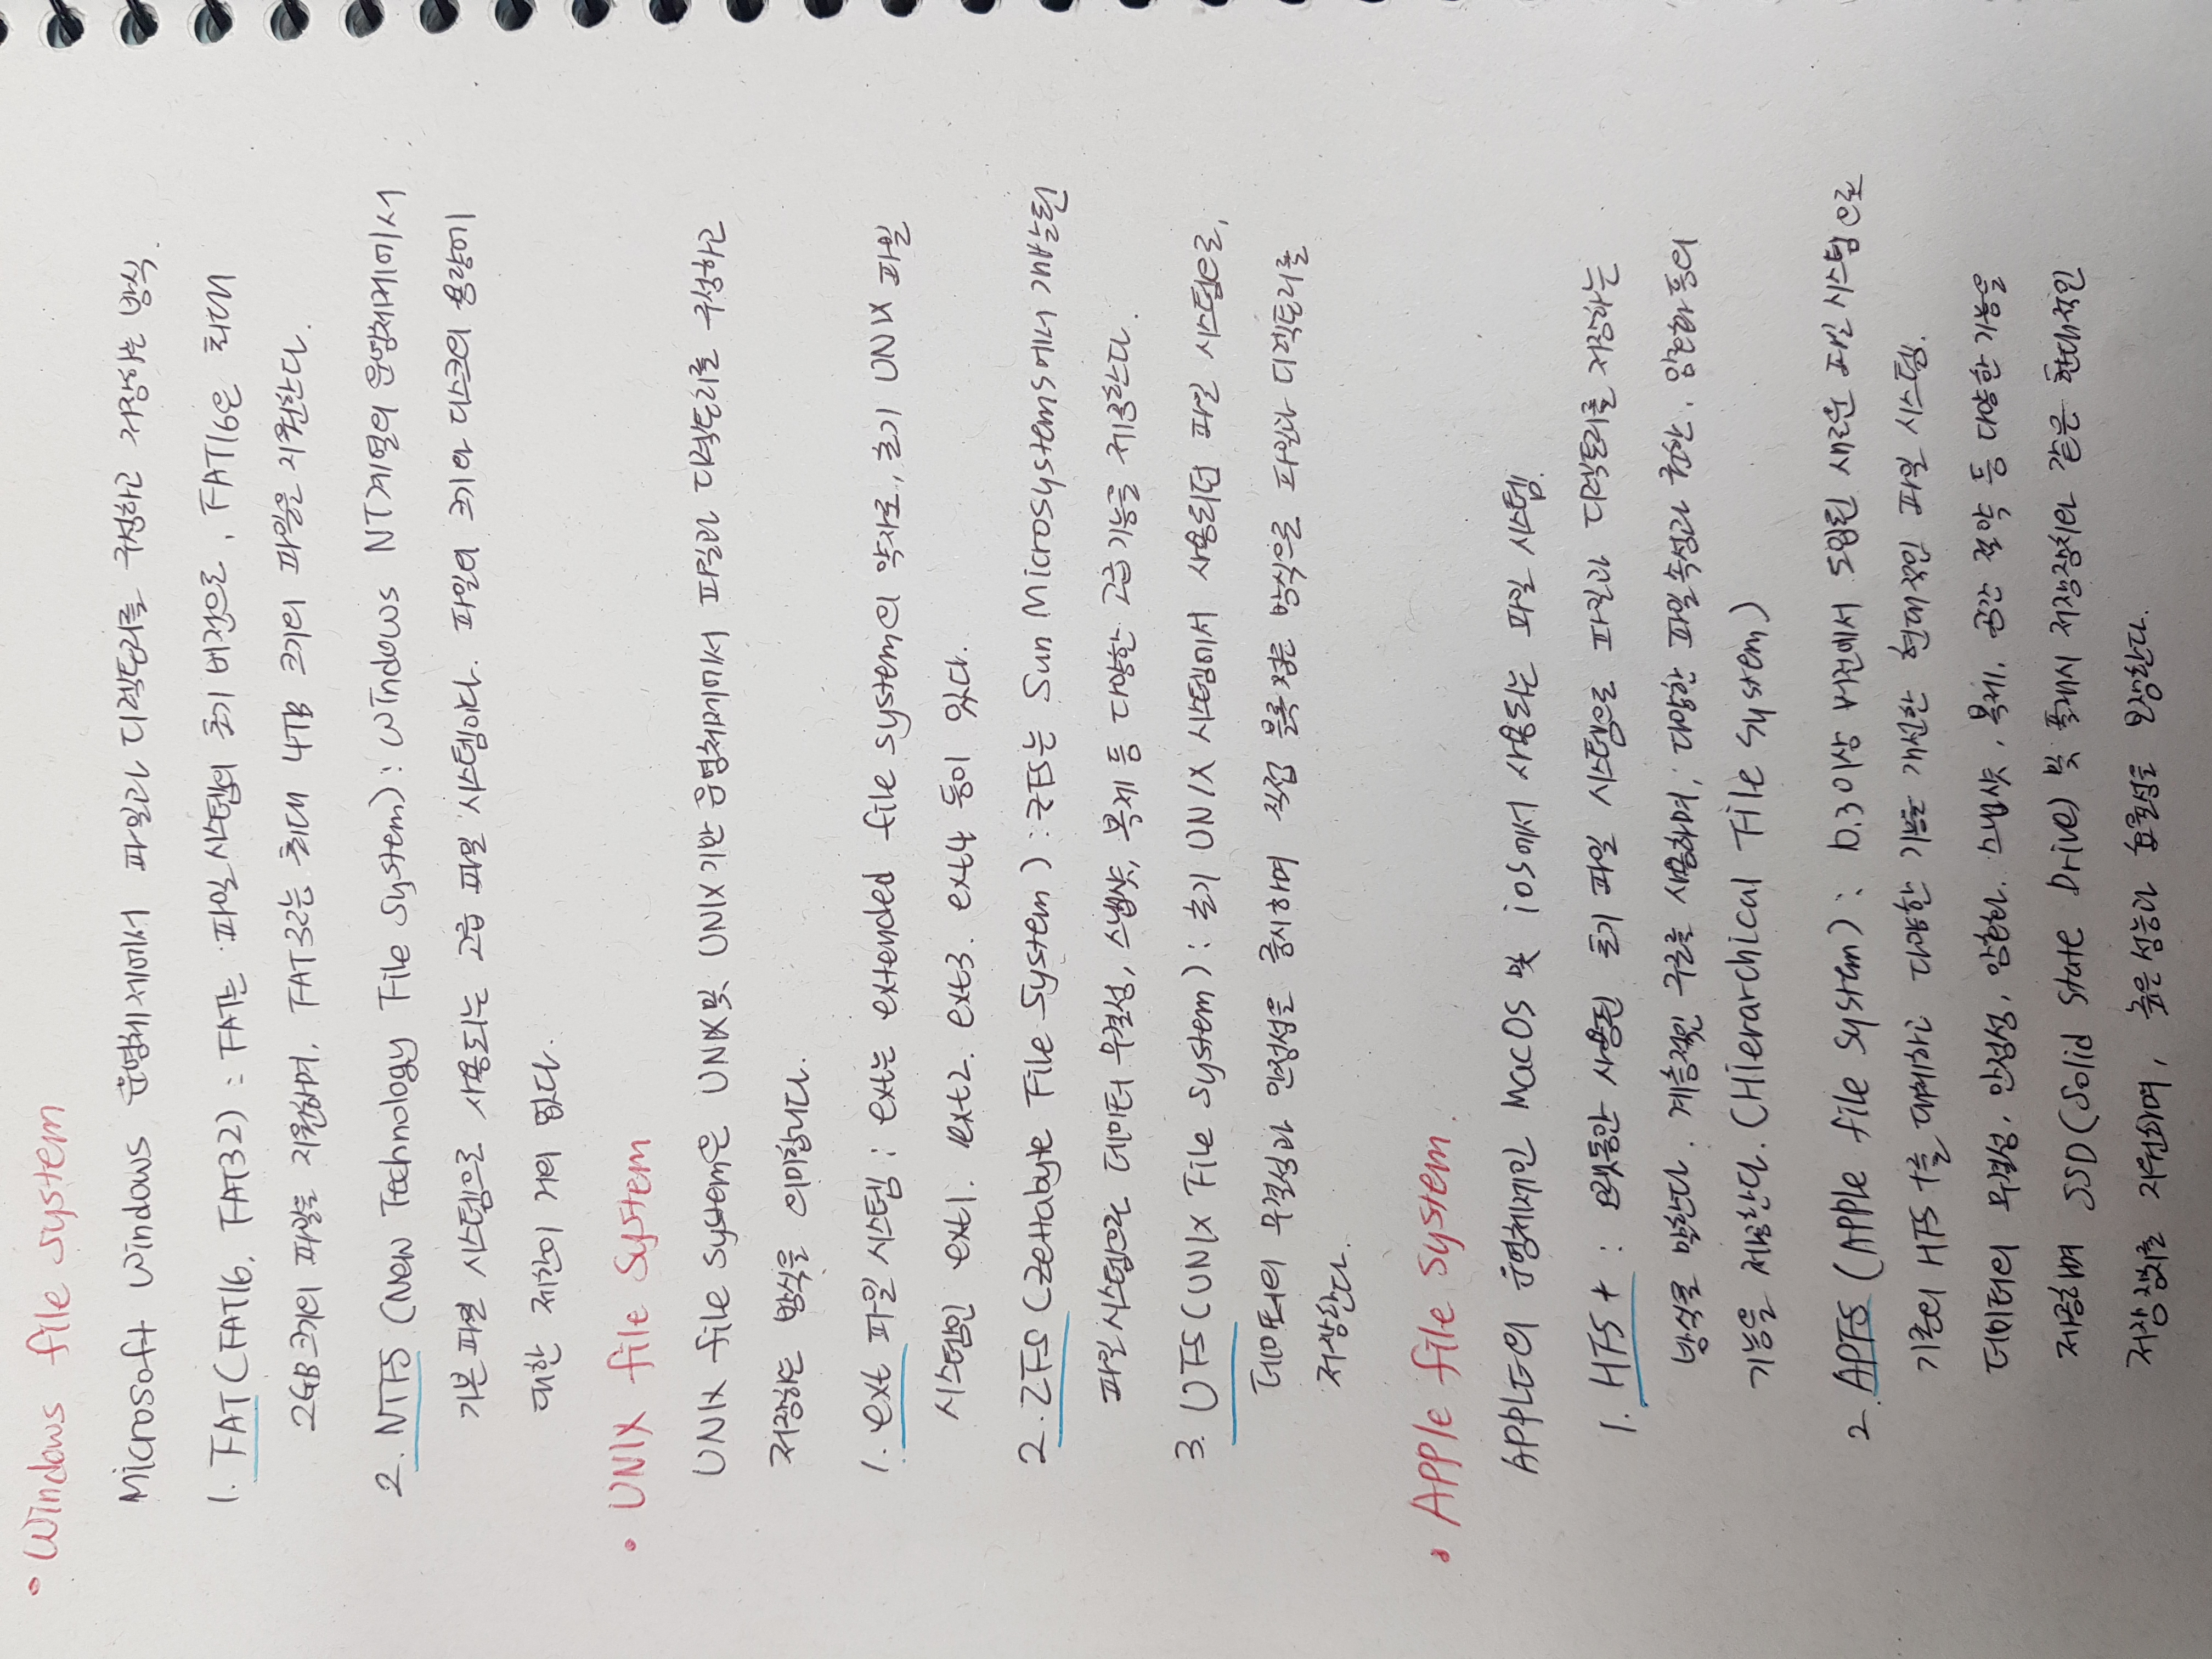 • Windows file system
Microsoft Windows 운영체제에서 파일과 디렉토리를 구성하고 저장하는 방식.
1. FAT (FAT16, FAT32) : FAT는 파일시스템의 초기 버전으로, FAT16은 최대
2GB 크기의 파일을 지원하며, FAT32는 최대 4TB 크기의 파일을 지원한다.
2. NTFS (New Technology File System) : Windows NT계열의 운영체제에서
기본 파일 시스템으로 사용되는 고급 파일 시스템이다. 파일의 크기와 디스크의 용량에
대한 제한이 거의 없다.
• UNIX file System
UNIX file System은 UNIX및 UNIX기반 운영체제에서 파일과 디렉토리를 구성하고
저장하는 방식을 의미합니다.
1. ext 파일 시스템 : ext는 extended file system의 약자로, 초기 UNIX 파일
시스템인 ext1. ext2. ext3. ext4 등이 있다.
2. ZFS (Zettabyte File System) : ZFS는 Sun Microsystems에서 개발된
파일시스템으로 데이터 무결성, 스냅샷, 복제 등 다양한 고급기능을 제공한다.
3. UFS (UNIX File System) : 초기 UNIX 시스템에서 사용되던 파일 시스템으로,
데이터의 무결성과 안정성을 중시하며 직접 블록 접근 방식으로 파일과 디렉토리를
저장한다.
• APPle file System.
APPLE의 운영체제인 MacOS 및 iOS에서 사용되는 파일 시스템.
1. HFS + : 오랫동안 사용된 초기 파일 시스템으로 파일과 디렉토리를 저장하는
방식을 말한다. 계층적인 구조를 사용하며, 다양한 파일속성과 권한, 암호화 등의
기능을 제공한다. (Hierarchical File System)
2. APFS (APPle file System) : 10.3이상 버전에서 도입된 새로운 파일 시스템으로
기존의 HFS +을 대체하고 다양한 기능을 개선한 현대적인 파일 시스템.
데이터의 무결성, 안정성, 암호화. 스냅샷, 복제, 공간 절약 등 다양한 기능을
제공하며 SSD (Solid State Drive) 및 플래시 저장장치와 같은 현대적인
저장장치를 지원하며, 높은 성능과 효율성을 보장한다.